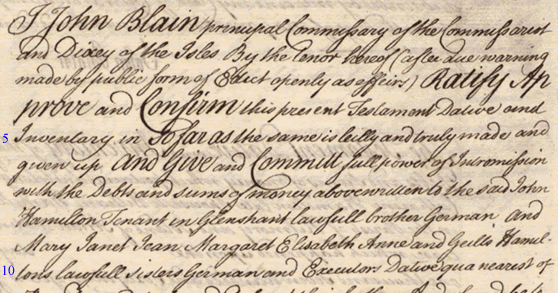 I John Blain principal Commissary of the Commissariot
and Diocy of the Isles By the Tenor hereof (after due warning
made by public form of Edict openly as effeirs) Ratify Ap
prove and Confirm this present Testament Dative and
5 Inventary in So far as the same is leilly and truly made and
given up And Give and Committ full power of Intromission
with the Debts and sums of money abovewritten to the said John
Hamilton Tenant in Gienshant lawfull brother German and
Mary Janet Jean Margaret Elisabeth Anne and Geills Hamil-
10 tons lawfull sisters German and Executors Dative qua nearest of